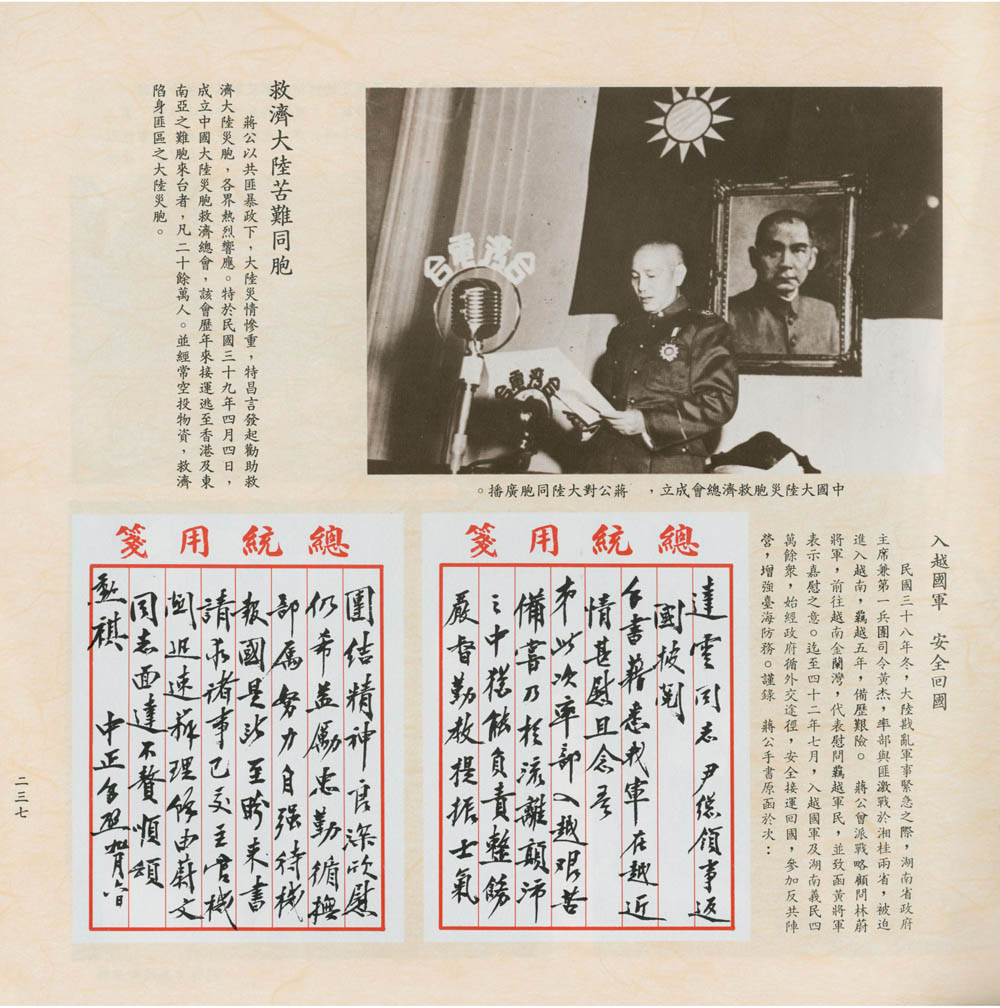 救濟大陸苦難同胞
蔣公以共匪暴政下，大陸災情慘重，特昌言發起勸助救
濟大陸災胞，各界熱烈響應。特於民國三十九年四月四日，
成立中國大陸災胞救濟總會，該會歷年來接運逃至香港及東
南亞之難胞來台者，凡二十餘萬人。並經常空投物資，救濟
陷身匪區之大陸災胞。
台灣電台
台灣電台
中國大陸災胞救濟總會成立，　蔣公對大陸同胞廣播。
入越國軍　安全回國
民國三十八年冬，大陸戡亂軍事緊急之際，湖南省政府
主席兼第一兵團司令黃杰，率部與匪激戰於湘桂兩省，被迫
進入越南，羈越五年，備歷艱險。　蔣公曾派戰略顧問林蔚
將軍，前往越南金蘭灣，代表慰問羈越軍民，並致函黃將軍
表示嘉慰之意。迄至四十二年七月，入越國軍及湖南義民四
萬餘衆，始經政府循外交途徑，安全接運回國，參加反共陣
營，增強臺海防務。謹錄　蔣公手書原函於次：
總統用箋
達雲同志尹總領事返
國披閱
手書藉悉我軍在越近
情甚慰且念吾
弟此次率部入越艱苦
備嘗乃於流離顛沛
之中猶能負責整飭
嚴督勤教提振士氣
總統用箋
團結精神良深欣慰
仍希益勵忠勤循撫
部屬努力自强待機
報國是所至盼來書
請求諸事已交主官機
關迅速辦理餘由蔚文
同志面達不贅順頌
勳祺　中正手啟
二三七